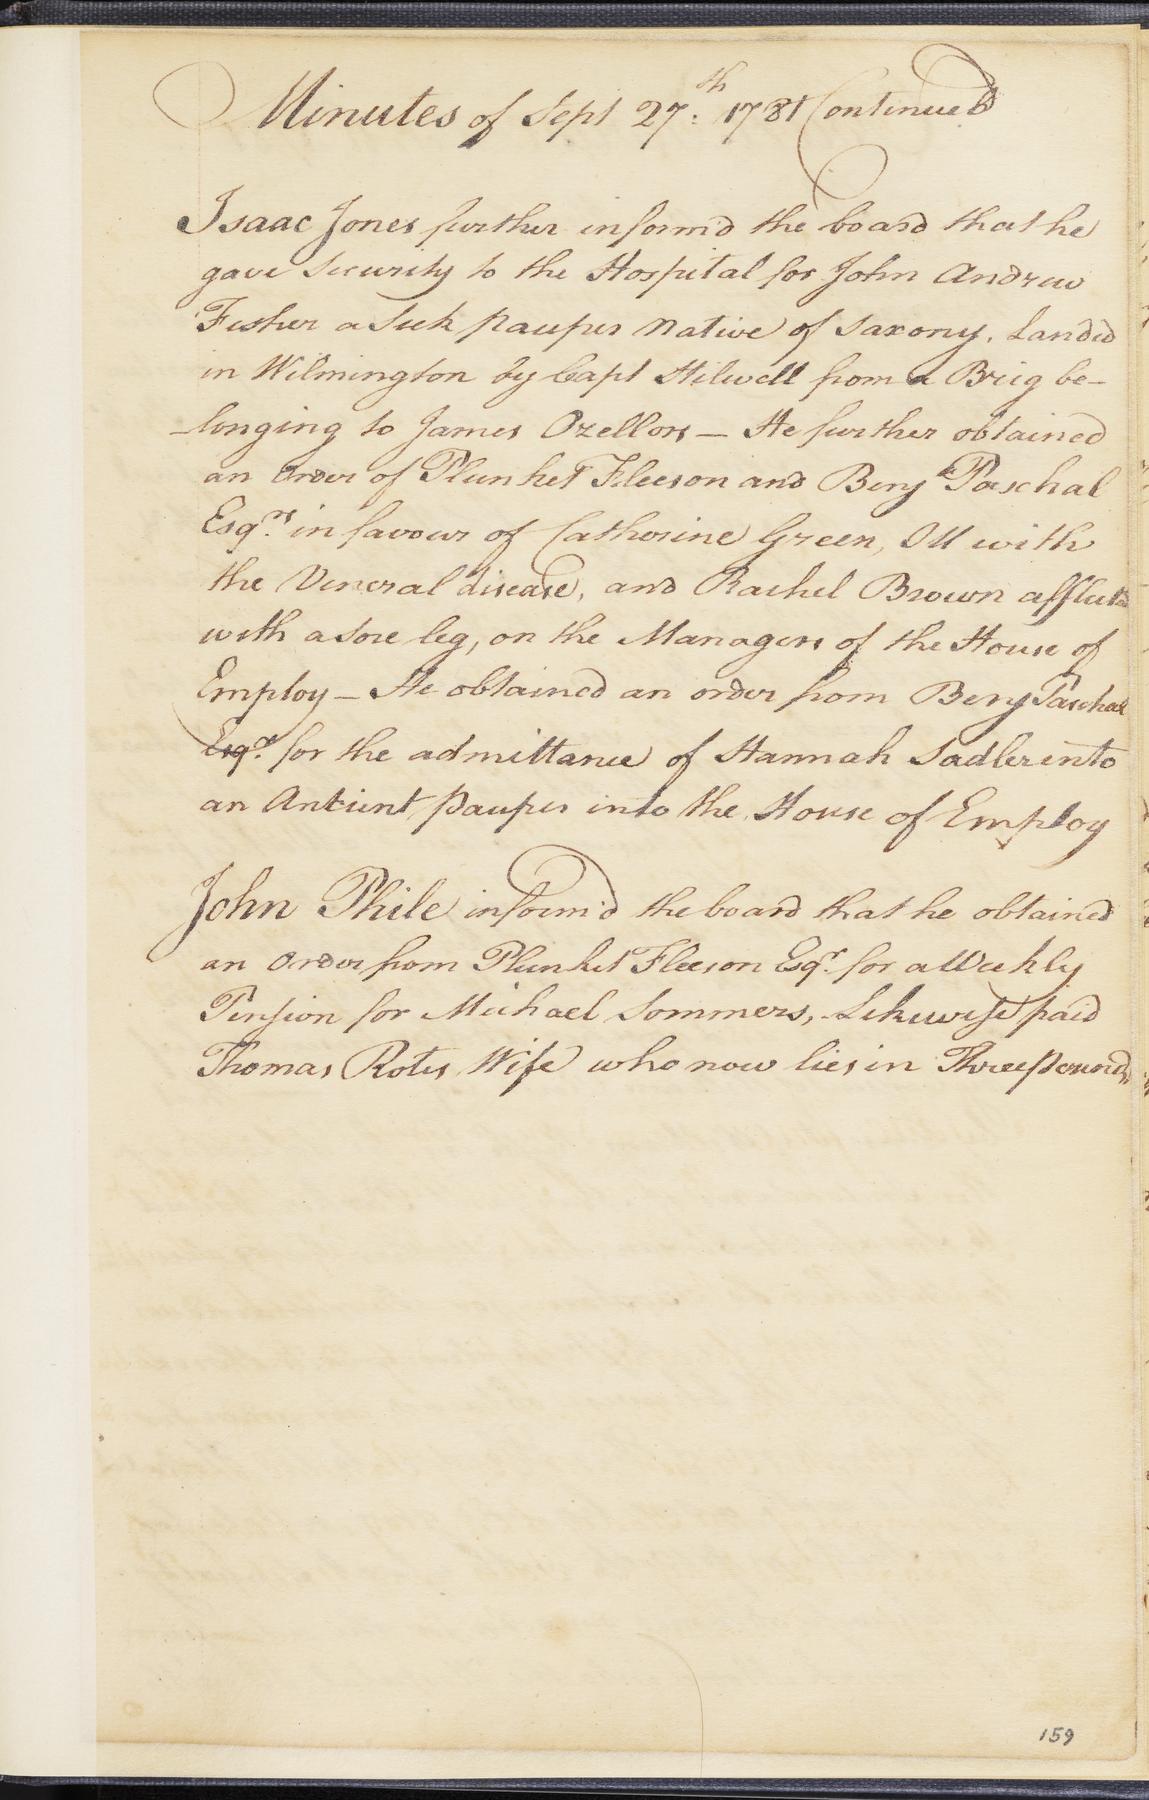 Minutes of Sept 27.th 1781 Continued
Isaac Jones further inform'd the board that he
gave Security to the Hospital for John Andrew
Fisher a Sick pauper Native of Saxony, Landed
in Wilmington by Capt Stilwell from a Brig be-
-longing to James Ozellors — He further obtained
an Order of Plunket Fleeson and Benj Paschal
Esqrs. in favour of Catherine Green, Ill with
the Veneral disease, and Rachel Brown afflicted
with a Sore leg, on the Managers of the House of
Employ — He obtained an order from Benj Paschal
Esqr. for the admittance of Hannah Sadler into
an Antient pauper into the House of Employ
John Phile inform'd the board that he obtained
an Order from Plunket Fleeson Esqr. for a Weekly
Pension for Michael Sommers, Likewise paid
Thomas Rotes Wife who now lies in Three pounds
159